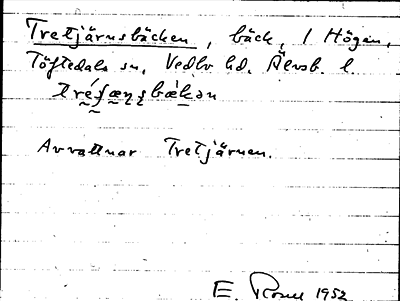 Tretjärnsbäcken, bäck, i Högen,
Töftedals sn, Vedbo hd. Älvsb. l
Avvattnar Tretjärnen.
E. Rosell 1952